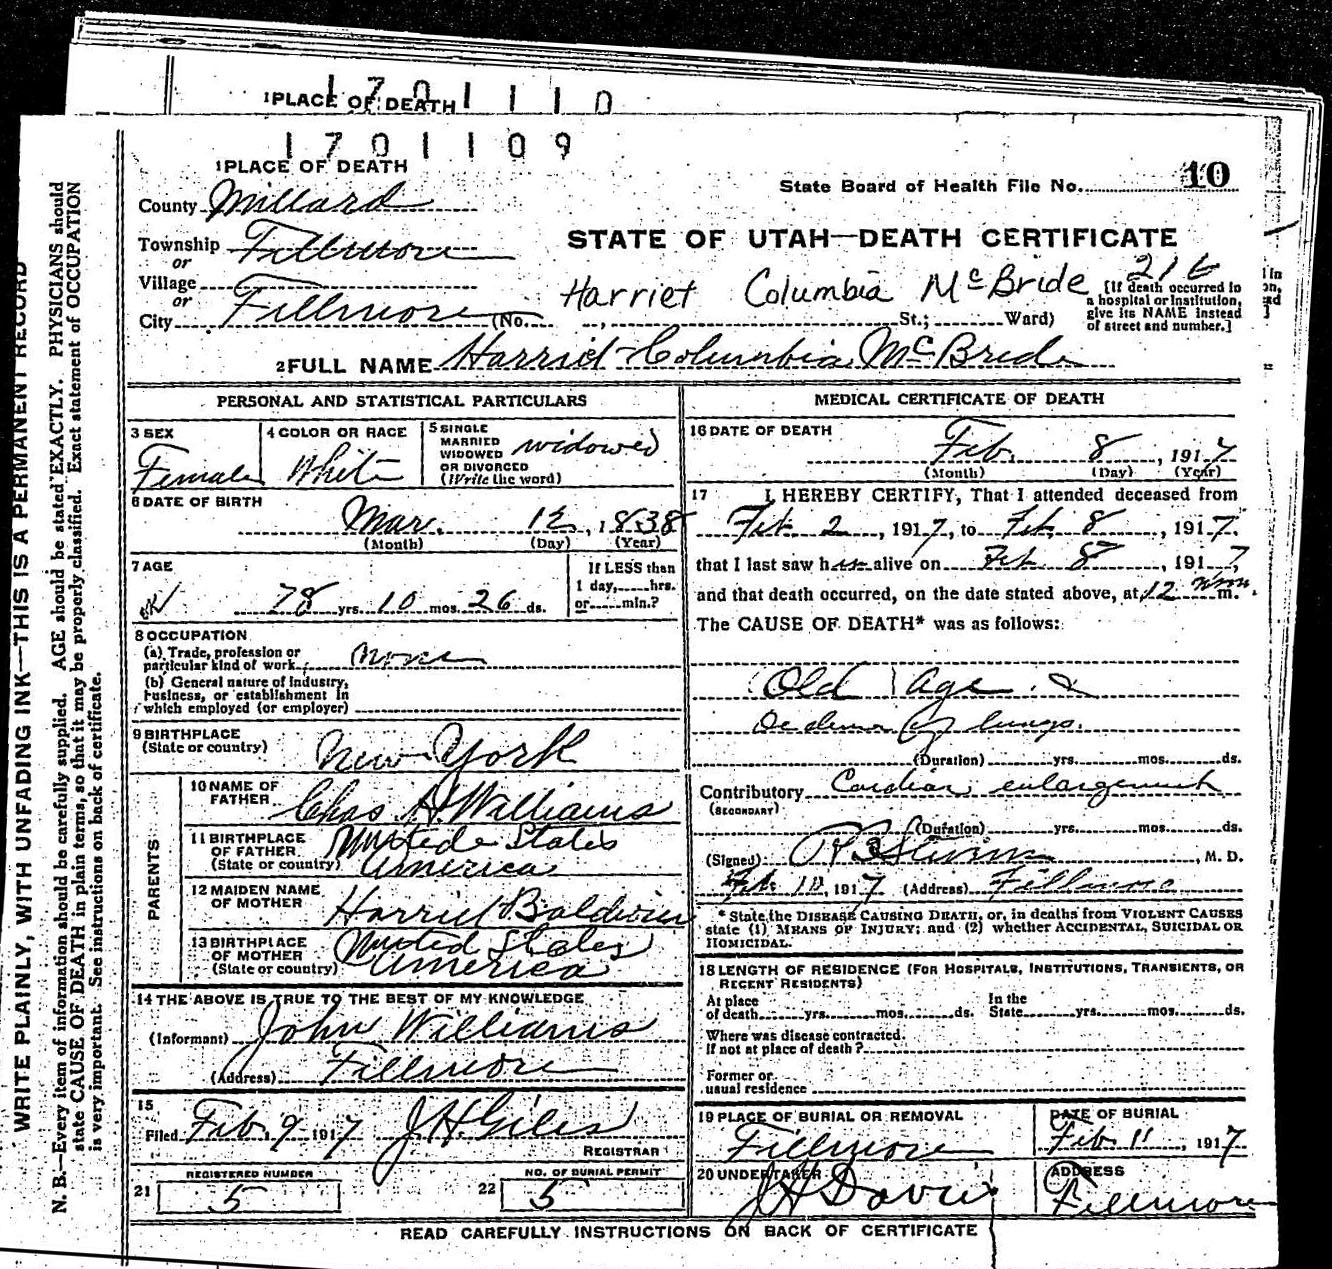 1PLACE OF DEATH
1701110
1701109
1PLACE OF DEATH
State Board of Health File No. 10
County Millard
Township Fillmore
or
Village
or
City Fillmore (No. , St.; Ward)
STATE OF UTAH—DEATH CERTIFICATE
Harriet Columbia McBride
216
[If death occurred in
a hospital or institution,
give its NAME instead
of street and number.]
2FULL NAME Harriet Columbia McBride
PERSONAL AND STATISTICAL PARTICULARS
3 SEX
Female
4 COLOR OR RACE
White
5 SINGLE
MARRIED
WIDOWED
OR DIVORCED
(Write the word)
widowed
6 DATE OF BIRTH
Mar. 12, 1838
(Month) (Day) (Year)
7 AGE
78 yrs. 10 mos. 26 ds.
If LESS than
1 day, hrs.
or min.?
8 OCCUPATION
(a) Trade, profession or
particular kind of work none
(b) General nature of industry,
business, or establishment in
which employed (or employer)
9 BIRTHPLACE
(State or country) New York
PARENTS
10 NAME OF
FATHER Chas H. Williams
11 BIRTHPLACE
OF FATHER
(State or country)
United States
America
12 MAIDEN NAME
OF MOTHER Harriet Baldwin
13 BIRTHPLACE
OF MOTHER
(State or country)
United States
America
14 THE ABOVE IS TRUE TO THE BEST OF MY KNOWLEDGE
(Informant) John Williams
(Address) Fillmore
15
Filed Feb. 9 1917 J.H. Giles
REGISTRAR
REGISTERED NUMBER
21 5
NO. OF BURIAL PERMIT
22 5
MEDICAL CERTIFICATE OF DEATH
16 DATE OF DEATH
Feb. 8, 1917
(Month) (Day) (Year)
17 I HEREBY CERTIFY, That I attended deceased from
Feb. 2, 1917, to Feb. 8, 1917,
that I last saw her alive on Feb. 8, 1917,
and that death occurred, on the date stated above, at 12 m.
The CAUSE OF DEATH* was as follows:
Old Age &
Oedema of lungs.
(Duration) yrs. mos. ds.
Contributory Cardiac enlargement
(SECONDARY)
(Duration) yrs. mos. ds.
(Signed) , M. D.
Feb. 10, 1917 (Address) Fillmore
* State the DISEASE CAUSING DEATH, or, in deaths from VIOLENT CAUSES
state (1) MEANS OF INJURY; and (2) whether ACCIDENTAL, SUICIDAL OR
HOMICIDAL.
18 LENGTH OF RESIDENCE (FOR HOSPITALS, INSTITUTIONS, TRANSIENTS, OR
RECENT RESIDENTS)
At place
of death yrs. mos. ds.
In the
State yrs. mos. ds.
Where was disease contracted,
If not at place of death?
Former or
usual residence
19 PLACE OF BURIAL OR REMOVAL
Fillmore
DATE OF BURIAL
Feb. 11, 1917
20 UNDERTAKER
ADDRESS
Fillmore
READ CAREFULLY INSTRUCTIONS ON BACK OF CERTIFICATE
WRITE PLAINLY, WITH UNFADING INK—THIS IS A PERMANENT RECORD
N. B.—Every item of information should be carefully supplied. AGE should be stated EXACTLY. PHYSICIANS should
state CAUSE OF DEATH in plain terms, so that it may be properly classified. Exact statement of OCCUPATION
is very important. See instructions on back of certificate.